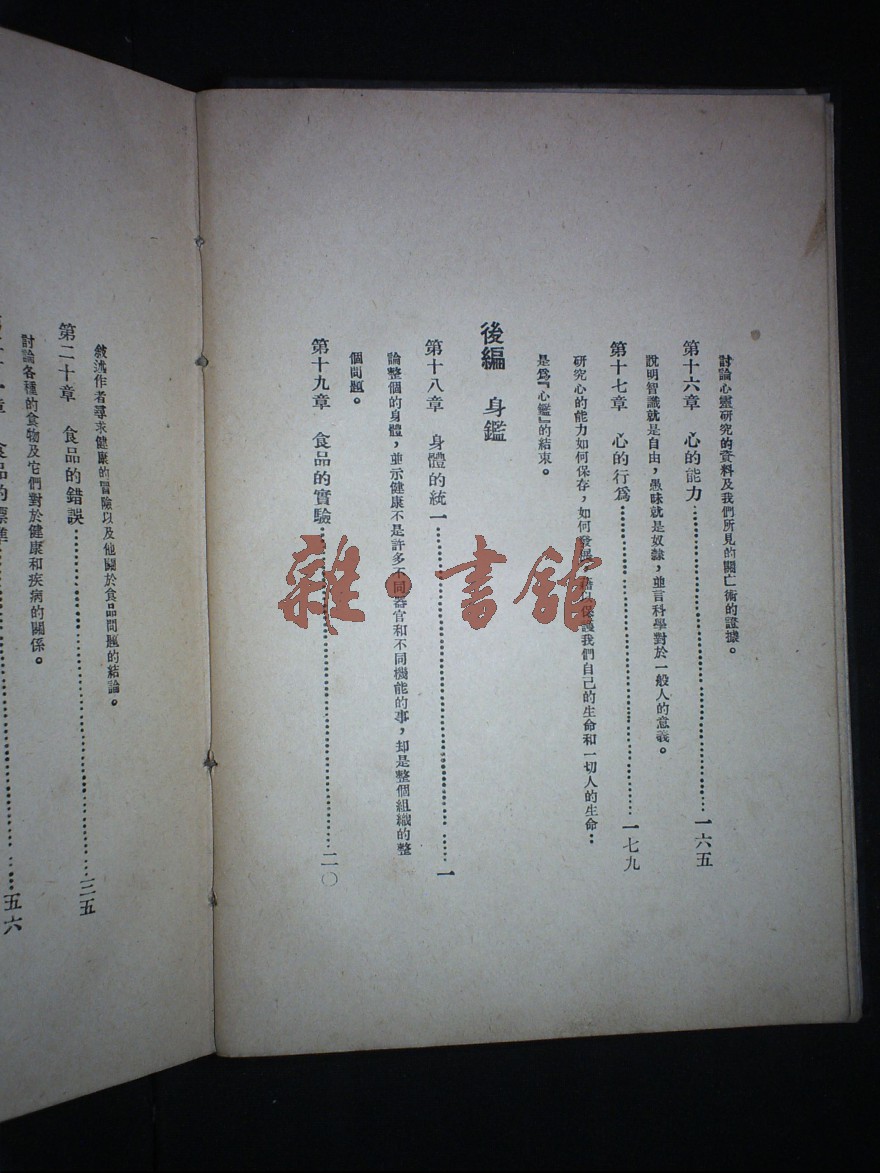 討論心靈研究的資料及我們所見的關亡術的證據。
第十六章 心的能力……一六五
說明智識就是自由，愚昧就是奴隸，並言科學對於一般人的意義。
第十七章 心的行爲……一七九
研究心的能力如何保存，如何發展，藉以保護我們自己的生命和一切人的生命：
是爲『心鑑』的結束。
後編 身鑑
第十八章 身體的統一……一
論整個的身體，並示健康不是許多不同器官和不同機能的事，却是整個組織的整
個問題。
第十九章 食品的實驗……二〇
敘述作者尋求健康的冒險以及他關於食品問題的結論。
第二十章 食品的錯誤……三五
討論各種的食物及它們對於健康和疾病的關係。
章 食品的標準……五六
雜·書館